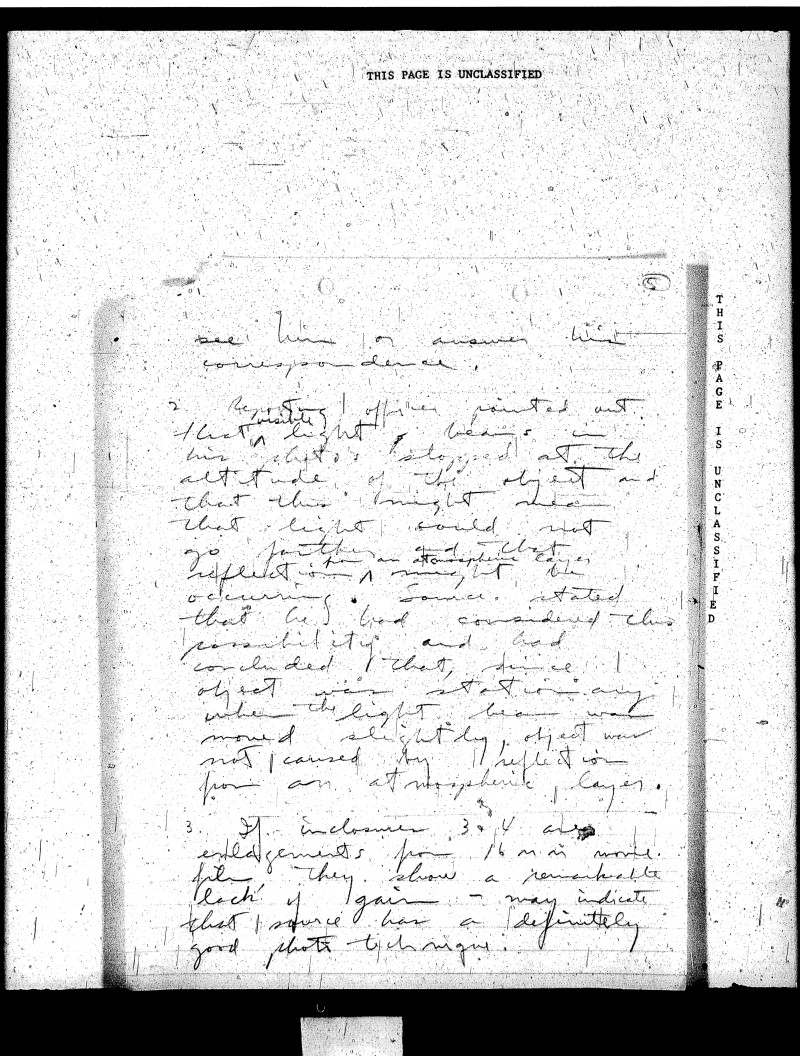 THIS PAGE IS UNCLASSIFIED
5
see him or answer his
correspondence.
2 Reporting officer pointed out
that visible light beams in
his photos stopped at the
altitude of the object and
that this might mean
that light could not
go further and that
reflection from an atmospheric layer might be
occurring. Source stated
that he had considered this
possibility and had
concluded that, since
object was stationary
when the light beam was
moved slightly, object was
not caused by reflection
from an atmospheric layer.
3. If inclosures 3 & 4 are
enlargements from 16 mm movie
film they show a remarkable
lack of gain - may indicate
that source has a definitely
good photo technique.
THIS PAGE IS UNCLASSIFIED